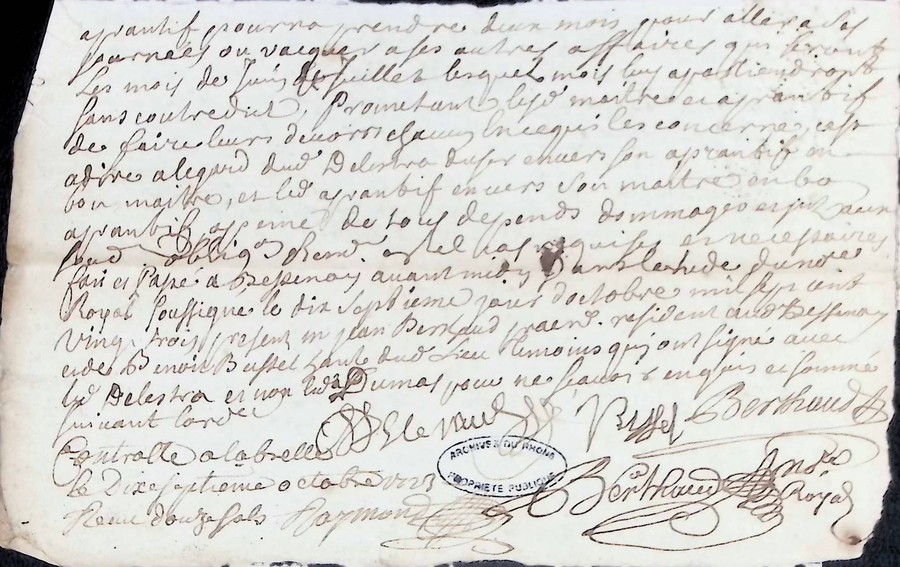 aprantif pourra prendre deux mois pour aller a ses
journées ou vacquer a ses autres affaires qui seront
Les mois de Juin et Juillet lesquel mois luy apartiendront
sans contredict, Promettant lesd maitre et aprantif
de faire leurs devoirs chacun en ce qui les concerne, cest
adire a legard dud Delestra duser envers son aprantif en
bon maitre, et led aprantif envers son maitre en bo
aprantif a peine de tous depends dommages et
soud obligoñ Renõ et cas requises et necessaires
fait et Passé a Bessenay avant midy dans letude du nore
Royal soussigné le dix septieme jour d'octobre mil sept cent
vingt trois present mr jean Berthaud resident aud Bessenay
et de Benoit Bussel dud Lieu temoins qui ont signé avec
led Delestra et non led Dumas pour ne scavoir enquis et sommé
suivant lord
Bussel Berthaud
Controllé a labrelle
le Dix septieme octobre 1723
ARCHIVES DU RHONE
PROPRIETE PUBLIQUE
Berthaud nore
Royal
Receu douze sols Raymond